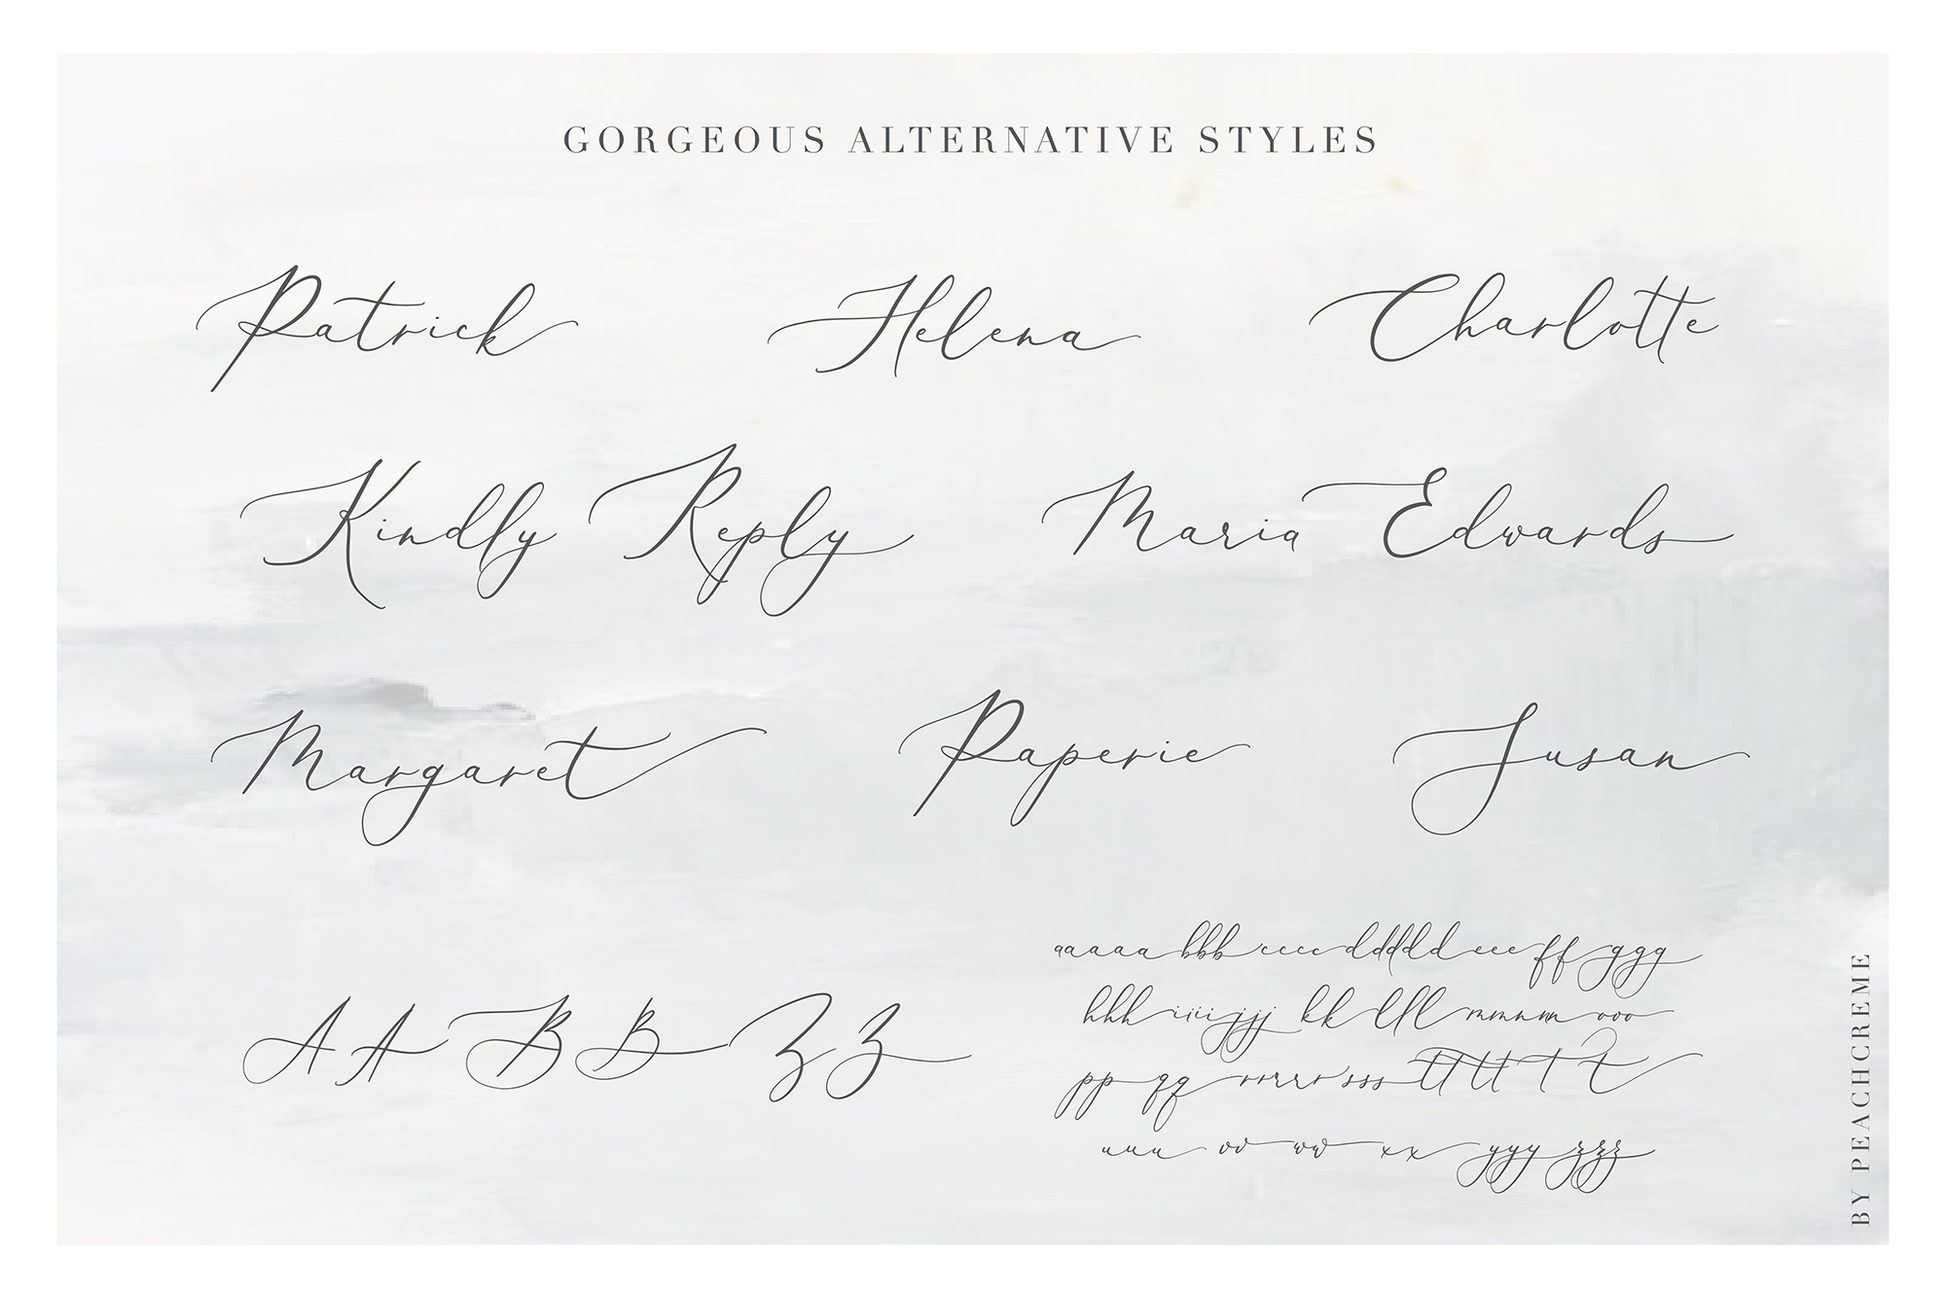 GORGEOUS ALTERNATIVE STYLES
Patrick Helena Charlotte
Kindly Reply Maria Edwards
Margaret Paperie Susan
A A B B Z Z
aaaaa bbb cccc ddddd eee ff ggg
hhh iiii jjj kk lll mmmm ooo
pp qq rrrrr sss tt tt t t
uuu vv ww xx yyy zzz
BY PEACHCREME